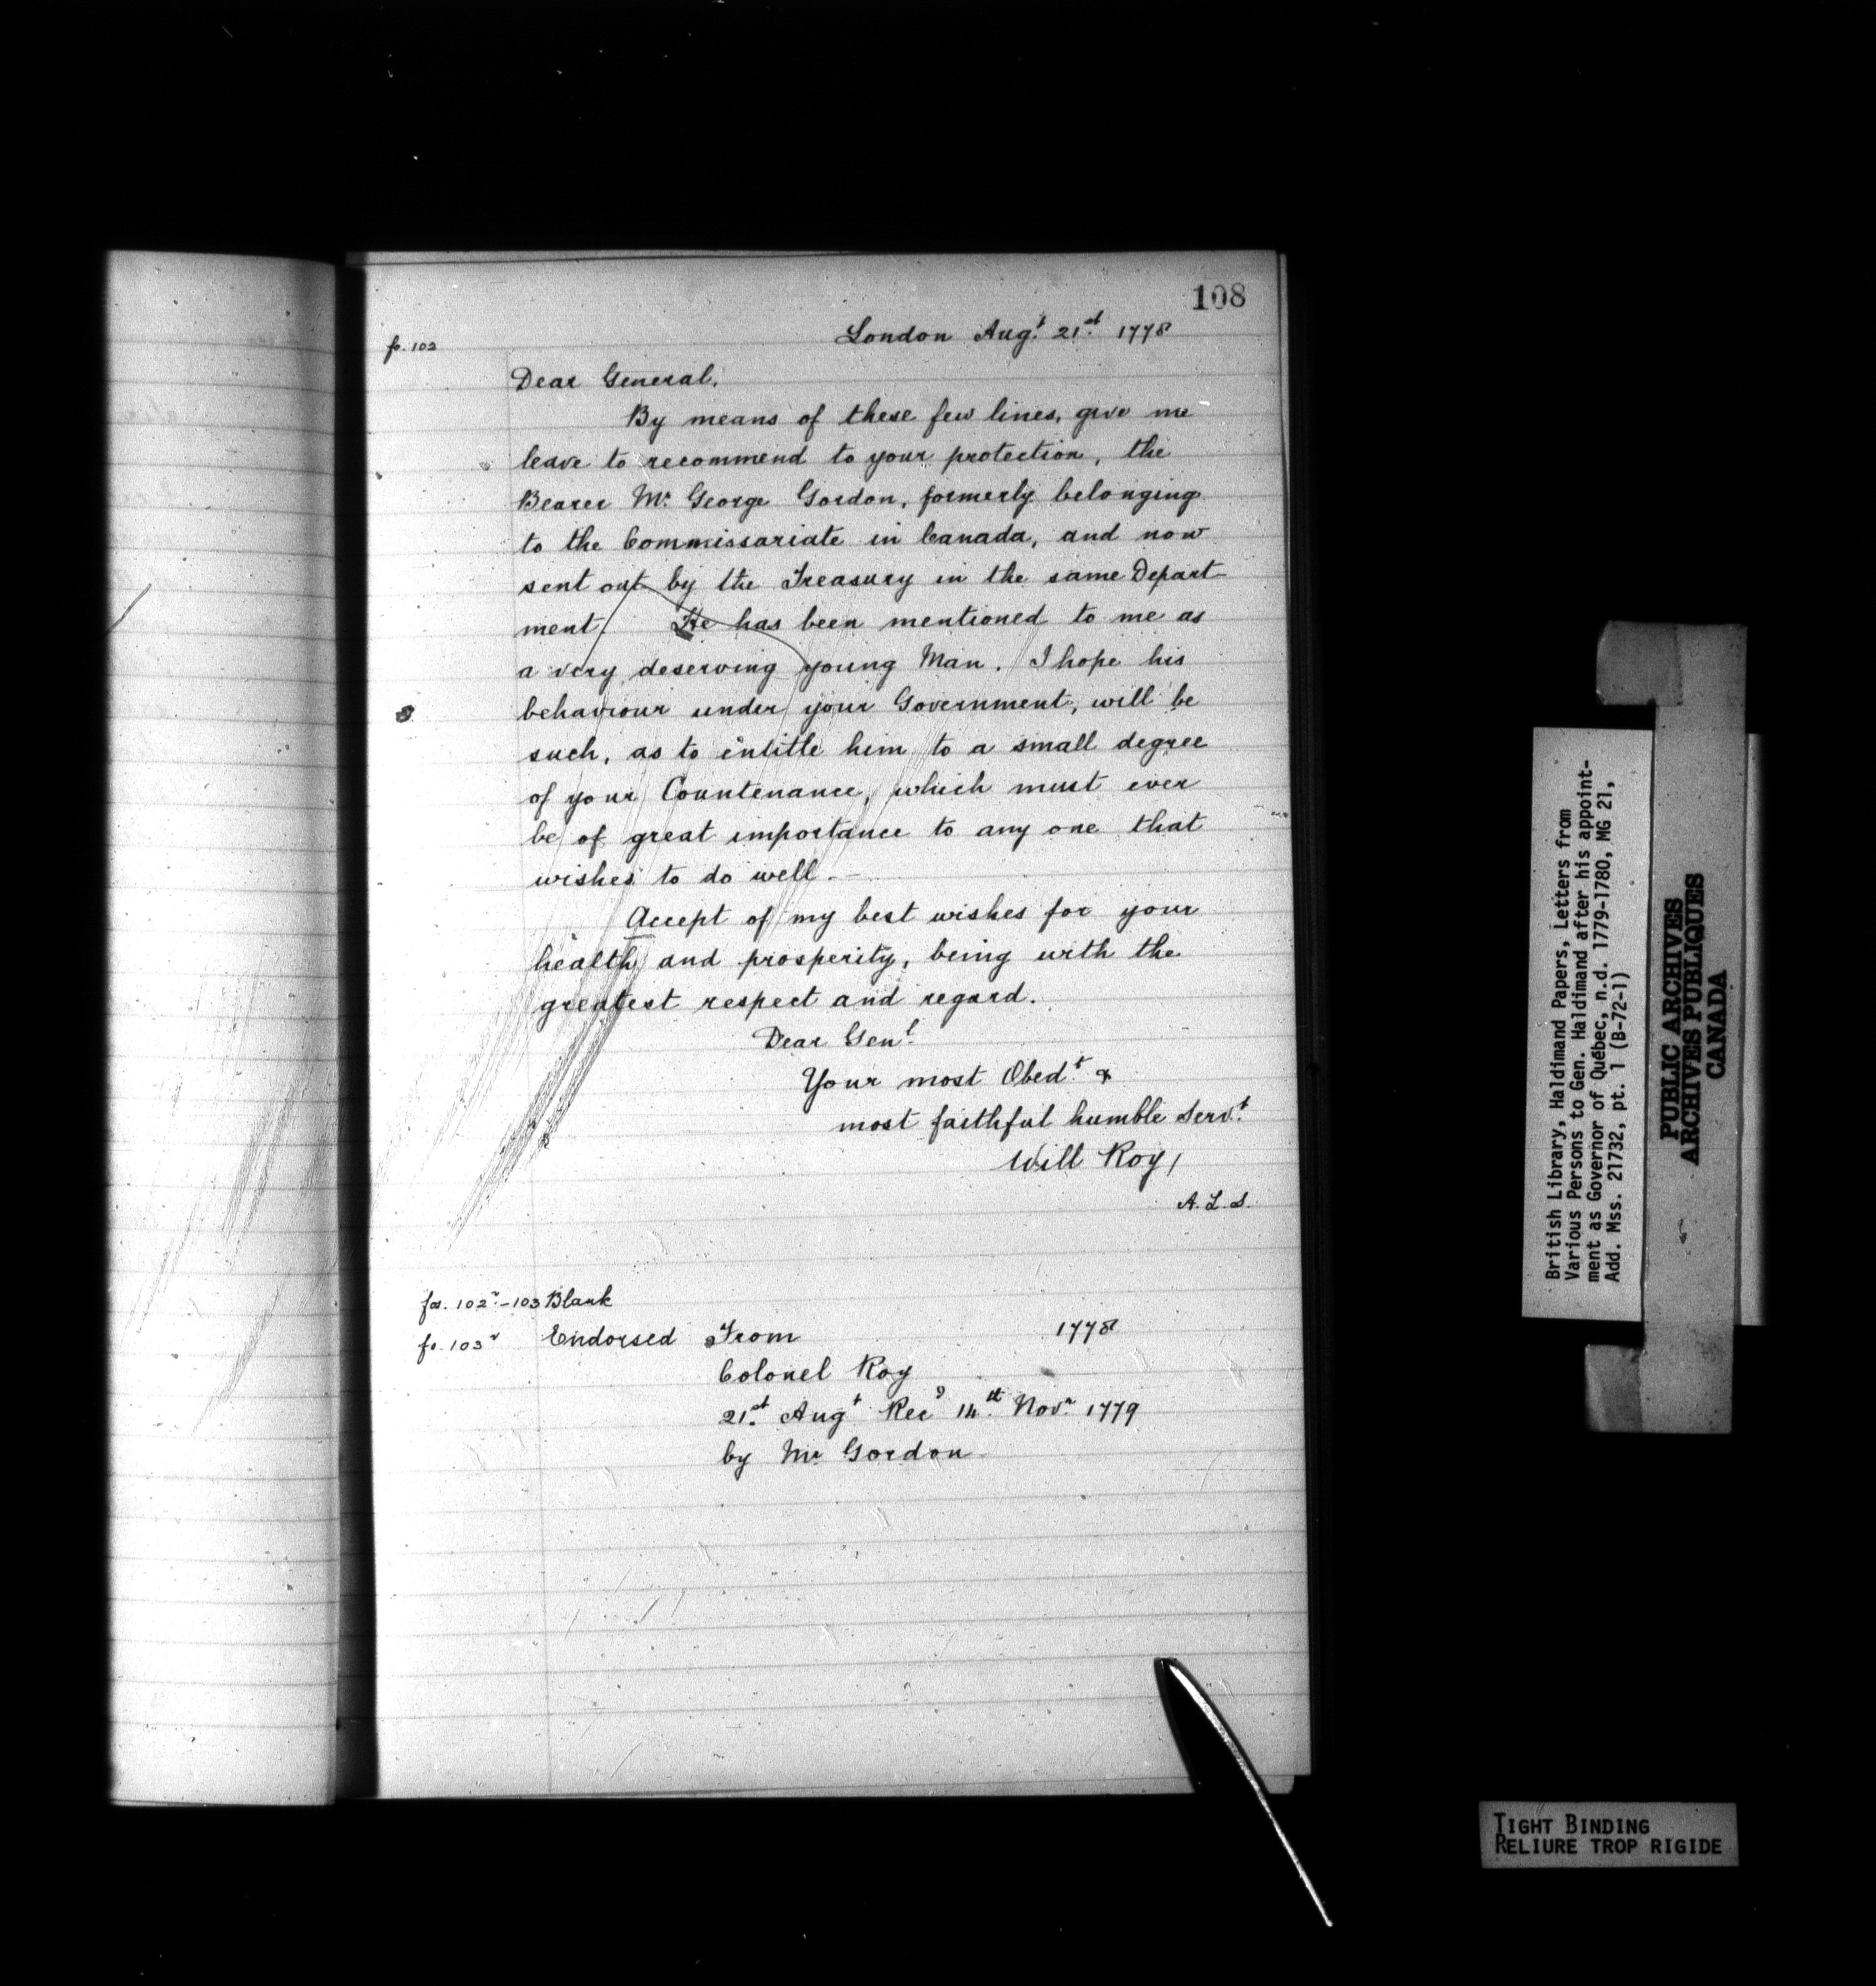 108
fo. 102
London Augt. 21st. 1778
Dear General.
By means of these few lines, give me
leave to recommend to your protection, the
Bearer Mr. George Gordon, formerly belonging
to the Commissariate in Canada, and now
sent out by the Treasury in the same Depart-
ment. He has been mentioned to me as
a very deserving young Man. I hope his
behaviour under your Government, will be
such, as to intitle him to a small degree
of your Countenance, which must ever
be of great importance to any one that
wishes to do well.—
Accept of my best wishes for your
health and prosperity, being with the
greatest respect and regard.
Dear Genl.
Your most Obedt. &
most faithful humble Servt.
Will Roy,
A.L.S.
fos. 102v.-103 Blank
fo. 103v Endorsed From 1778
Colonel Roy
21st. Augt Recd 14th. Novr. 1779
by Mr Gordon
British Library, Haldimand Papers, Letters from
Various Persons to Gen. Haldimand after his appoint-
ment as Governor of Québec, n.d. 1779-1780, MG 21,
Add. Mss. 21732, pt. 1 (B-72-1)
PUBLIC ARCHIVES
ARCHIVES PUBLIQUES
CANADA
TIGHT BINDING
RELIURE TROP RIGIDE